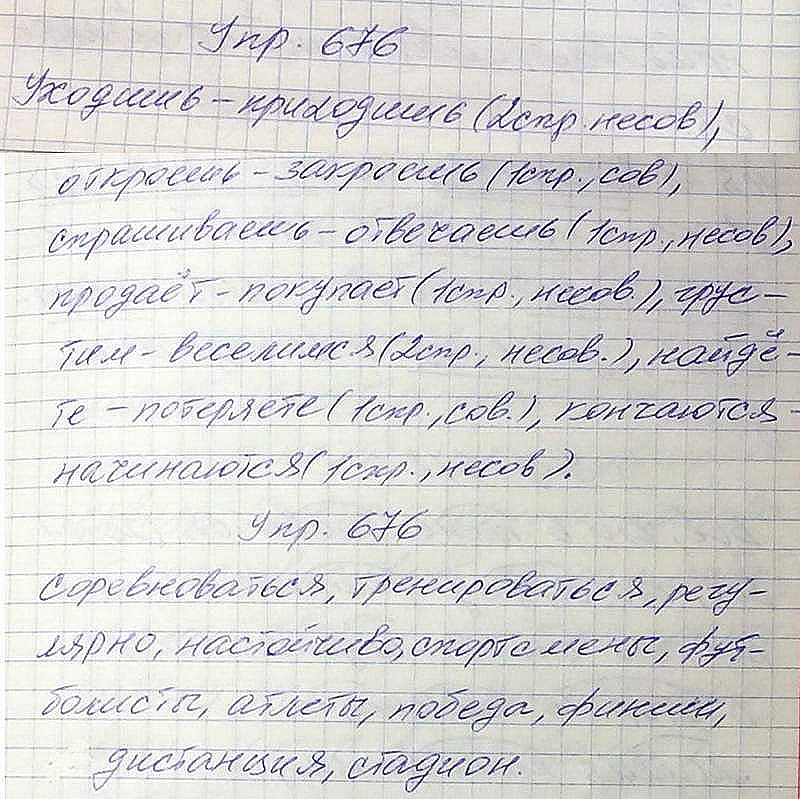 Упр. 676
Уходишь – приходишь (2спр. несов),
откроешь – закроешь (1спр., сов),
спрашиваешь – отвечаешь (1спр., несов),
продаёт – покупает (1спр., несов.), грус–
тим – веселимся (2спр., несов.), найдё–
те – потеряете (1спр., сов.), кончаются –
начинаются (1спр., несов).
Упр. 676
соревноваться, тренироваться, регу–
лярно, настойчиво, спортсмены, фут–
болисты, атлеты, победа, финиш,
дистанция, стадион.